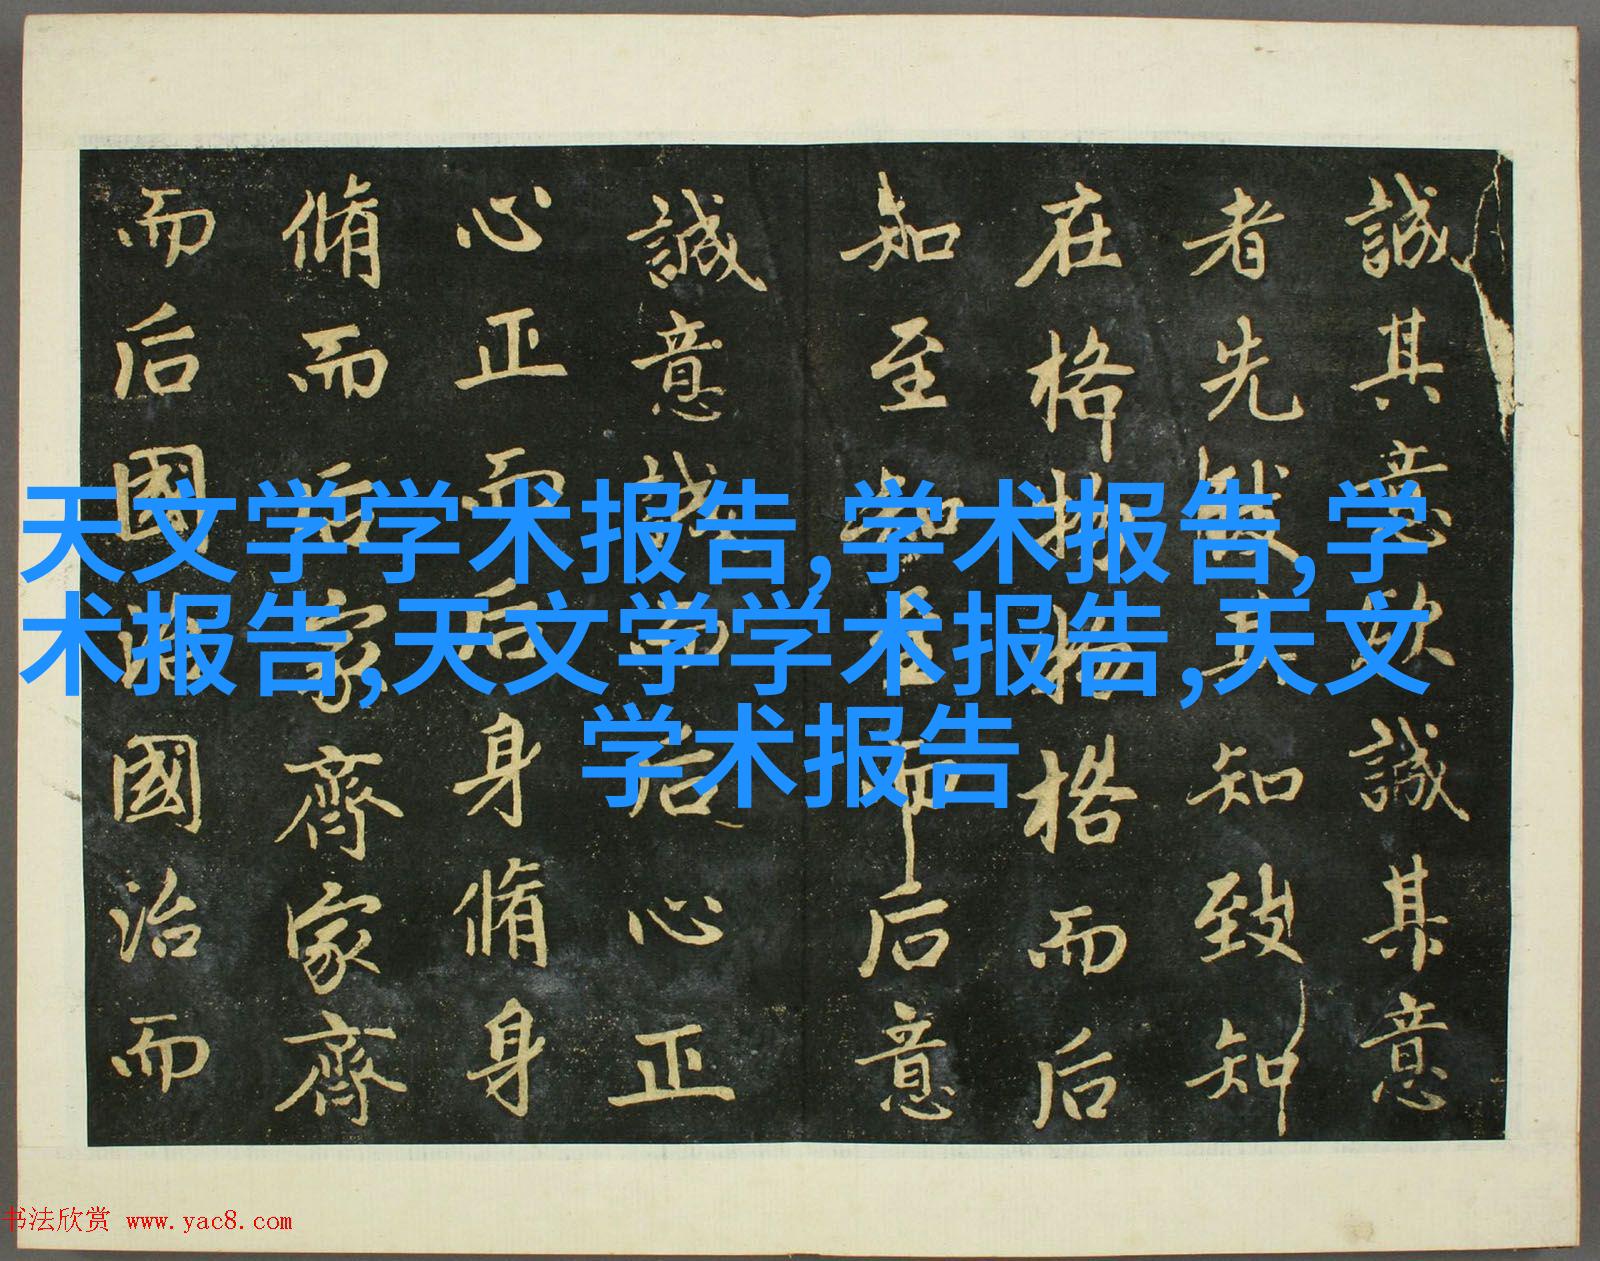 誠其意欲誠其意
者先致其知致知
在格物物格而后
知至知至而后意
誠意誠而后心正
心正而后身脩身
脩而后家齊家齊
而后國治國治而
天文学学术报告,学术报告,学
术报告,天文学学术报告,天文
学术报告
书法欣赏 www.yac8.com